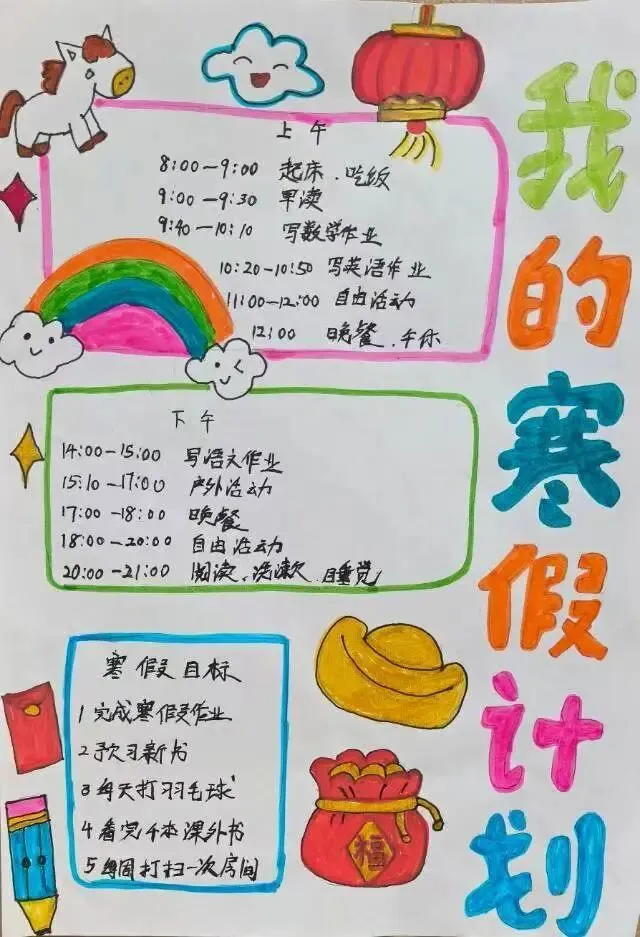 我的寒假计划
上午
8:00—9:00 起床、吃饭
9:00—9:30 早读
9:40—10:10 写数学作业
10:20—10:50 写英语作业
11:00—12:00 自由活动
12:00 晚餐、午休
下午
14:00—15:00 写语文作业
15:10—17:00 户外活动
17:00—18:00 晚餐
18:00—20:00 自由活动
20:00—21:00 阅读、洗漱、睡觉
寒假目标
1 完成寒假作业
2 预习新书
3 每天打羽毛球
4 看完千本课外书
5 每周打扫一次房间
福